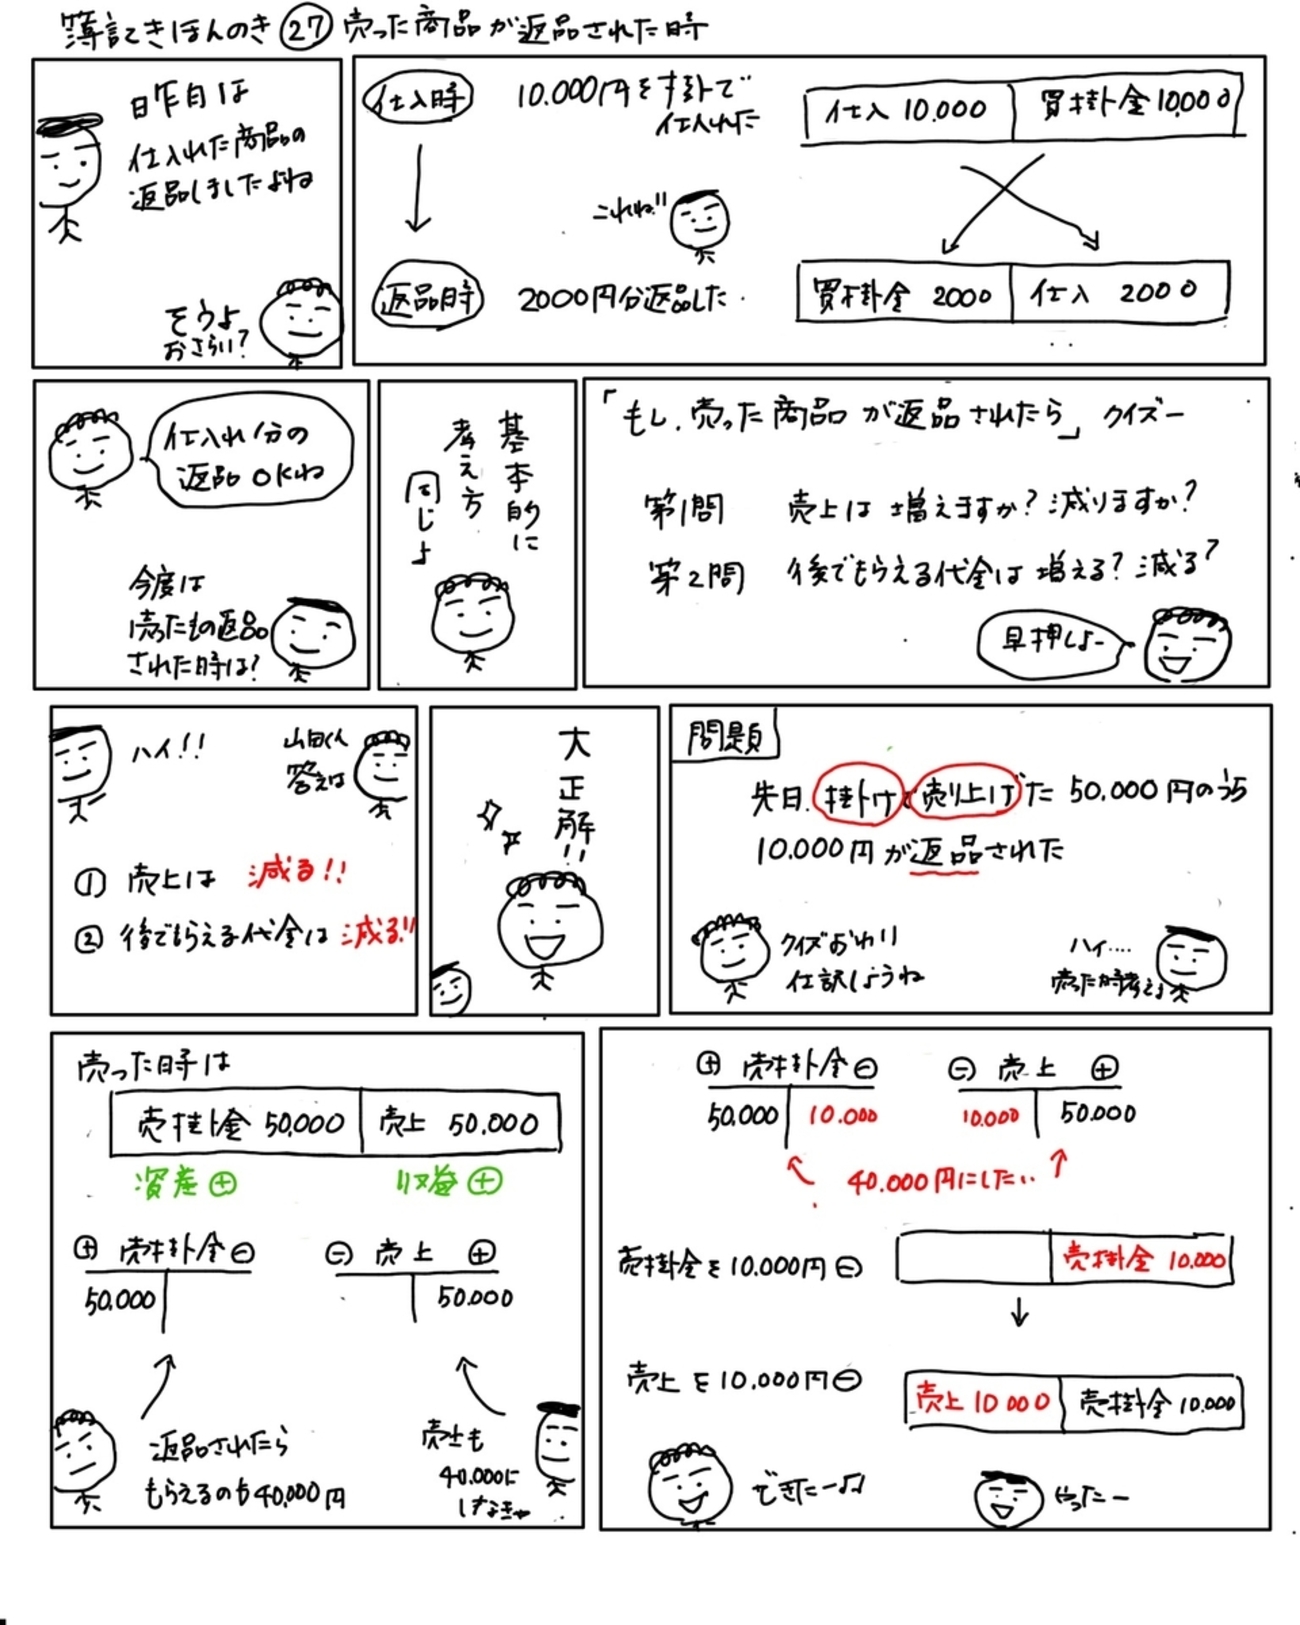 簿記きほんのき㉗ 売った商品が返品された時
昨日は
仕入れた商品の
返品しましたよね
そうよ
おさらい?
仕入時
10.000円を掛で
仕入れた
仕入 10.000
買掛金 10.000
これね!!
返品時
2000円分返品した
買掛金 2000
仕入 2000
仕入れ分の
返品OKね
今度は
売ったもの返品
された時は?
基本的に
考え方
同じよ
「もし、売った商品が返品されたら」クイズー
第1問 売上は増えますか?減りますか?
第2問 後でもらえる代金は増える?減る?
早押しよー
ハイ!!
山田くん
答えは
① 売上は 減る!!
② 後でもらえる代金は 減る!!
大正解!!
問題
先日、掛けで売り上げた 50.000円のうち
10.000円が返品された
クイズおわり
仕訳しようね
ハイ....
売った時考えよ
売った時は
売掛金 50.000
売上 50.000
資産⊕
収益⊕
⊕ 売掛金 ⊖
50.000
⊖ 売上 ⊕
50.000
返品されたら
もらえるのも40.000円
売上も
40.000に
しなきゃ
⊕ 売掛金 ⊖
50.000 10.000
⊖ 売上 ⊕
10.000 50.000
40.000円にしたい
売掛金を10.000円⊖
売掛金 10.000
売上を10.000円⊖
売上 10000
売掛金 10.000
できたー♫
やったー